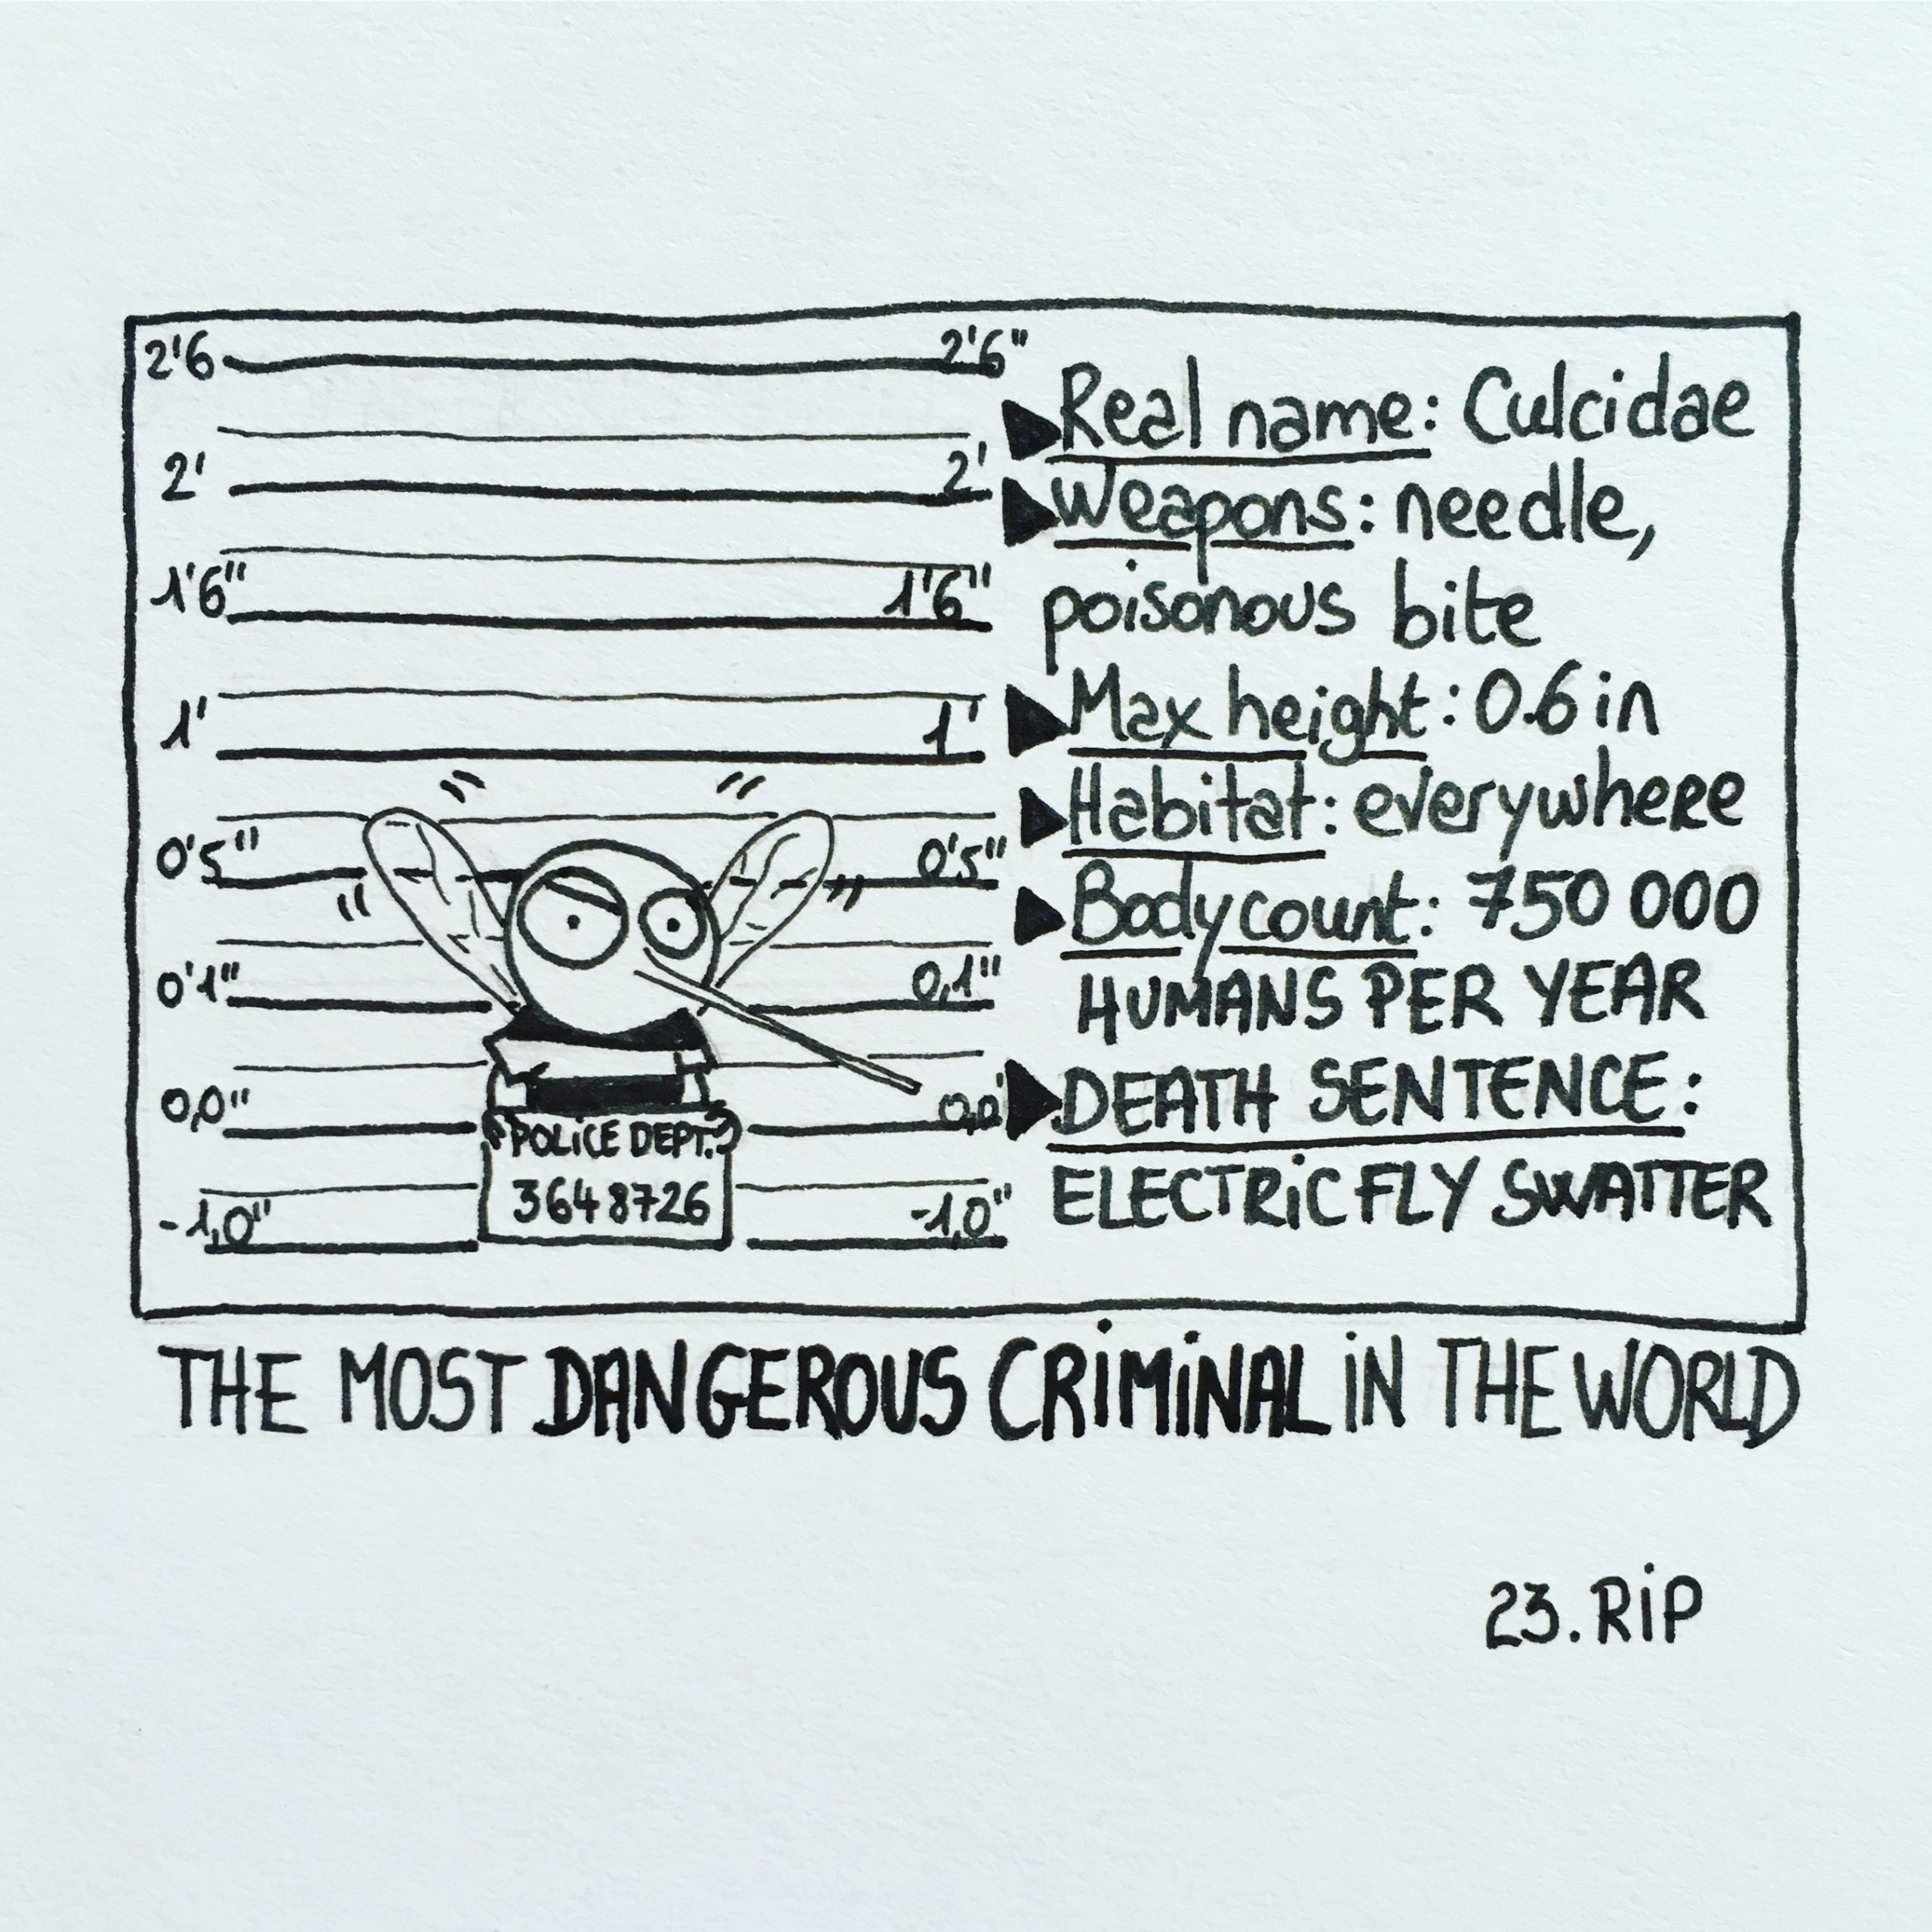 2'6 2'6"
2' 2'
1'6" 1'6"
1' 1'
0'5" 0'5"
0'1" 0,1"
0,0" 0,0'
-1,0" -1,0"
POLiCE DEPT.
3648726
Real name: Culcidae
Weapons: needle,
poisonous bite
Max height: 0.6 in
Habitat: everywhere
Body count: 750 000
HUMANS PER YEAR
DEATH SENTENCE:
ELECTRiC FLY SWATTER
THE MOST DANGEROUS CRiMiNAL iN THE WORLD
23. RiP